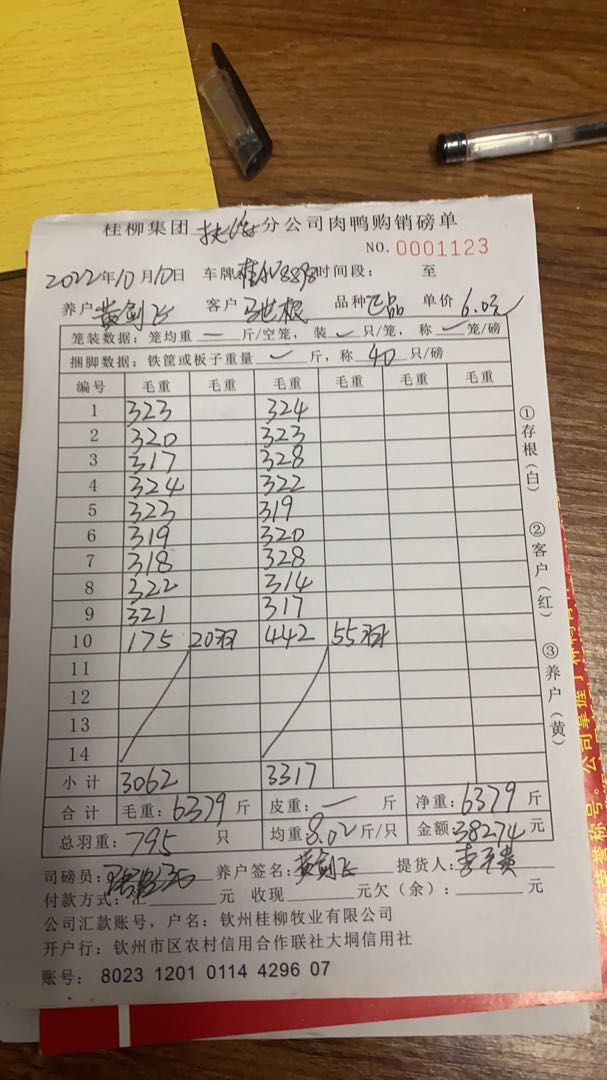 桂柳集团 扶绥 分公司肉鸭购销磅单
NO. 0001123
2022年10月10日 车牌: 时间段: 至
养户 黄剑飞 客户 马世根 品种 正品 单价 6.0元
笼装数据: 笼均重 — 斤/空笼, 装 只/笼, 称 笼/磅
捆脚数据: 铁筐或板子重量 斤, 称 40 只/磅
编号 毛重 毛重 毛重 毛重 毛重 毛重
1 323 324
2 320 323
3 317 328
4 324 322
5 323 319
6 319 320
7 318 328
8 322 314
9 321 317
10 175 20羽 442 55羽
11
12
13
14
小计 3062 3317
合计 毛重: 6379 斤 皮重: — 斤 净重: 6379 斤
总羽重: 795 只 均重 8.02 斤/只 金额: 38274 元
司磅员: 养户签名: 黄剑飞 提货人:
付款方式: 元 收现 元欠(余): 元
公司汇款账号, 户名: 钦州桂柳牧业有限公司
开户行: 钦州市区农村信用合作联社大垌信用社
账号: 8023 1201 0114 4296 07
①存根(白)
②客户(红)
③养户(黄)